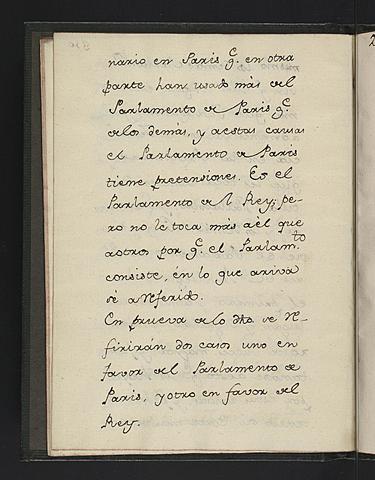 nario en Paris q.e en otra
parte han usado màs del
Parlamento de Paris q.e
de los demás, y a estas causas
el Parlamento de Paris
tiene pretensiones. Es el
Parlamento del Rey; pe-
ro no le toca màs a èl que
a otros por q.e el Parlam.to
consiste, èn lo que arriva
sè a referido.
En prueva de lo dho se re-
firiràn dos casos uno en
favor del Parlamento de
Paris, y otro en favor del
Rey.
2